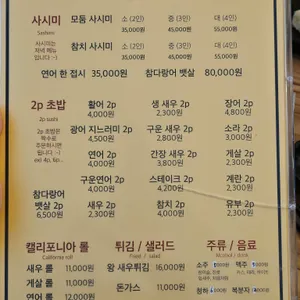 사시미 모듬 사시미 소 (2인) 중 (3인) 대 (4인)
Sashimi 35,000원 45,000원 55,000원
사시미는
저녁 메뉴
입니다 :-)
참치 사시미 소 (2인) 중 (3인) 대 (4인)
35,000원 45,000원 55,000원
연어 한 접시 35,000원 참다랑어 뱃살 80,000원
2p 초밥 활어 2p 생 새우 2p 장어 2p
2p sushi 4,000원 2,300원 4,800원
2p 초밥은
짝수로
주문하시면
됩니다 :-)
ex) 4p, 6p..
광어 지느러미 2p 구운 새우 2p 소라 2p
4,500원 2,800원 3,000원
연어 2p 간장 새우 2p 게살 2p
4,000원 3,800원 2,300원
구운연어 2p 스테이크 2p 계란 2p
4,000원 4,200원 2,300원
참다랑어
뱃살 2p 새우 2p 참치 2p 유부 2p
6,500원 2,300원 4,000원 2,300원
캘리포니아 롤 튀김 / 샐러드 주류 / 음료
California roll Fried / salad Alcohol / drink
새우 롤 11,000원 왕 새우튀김 16,000원 소주 맥주
게살 롤 11,000원 돈가스
연어 롤 12,000원 11,000원 청하 복분자